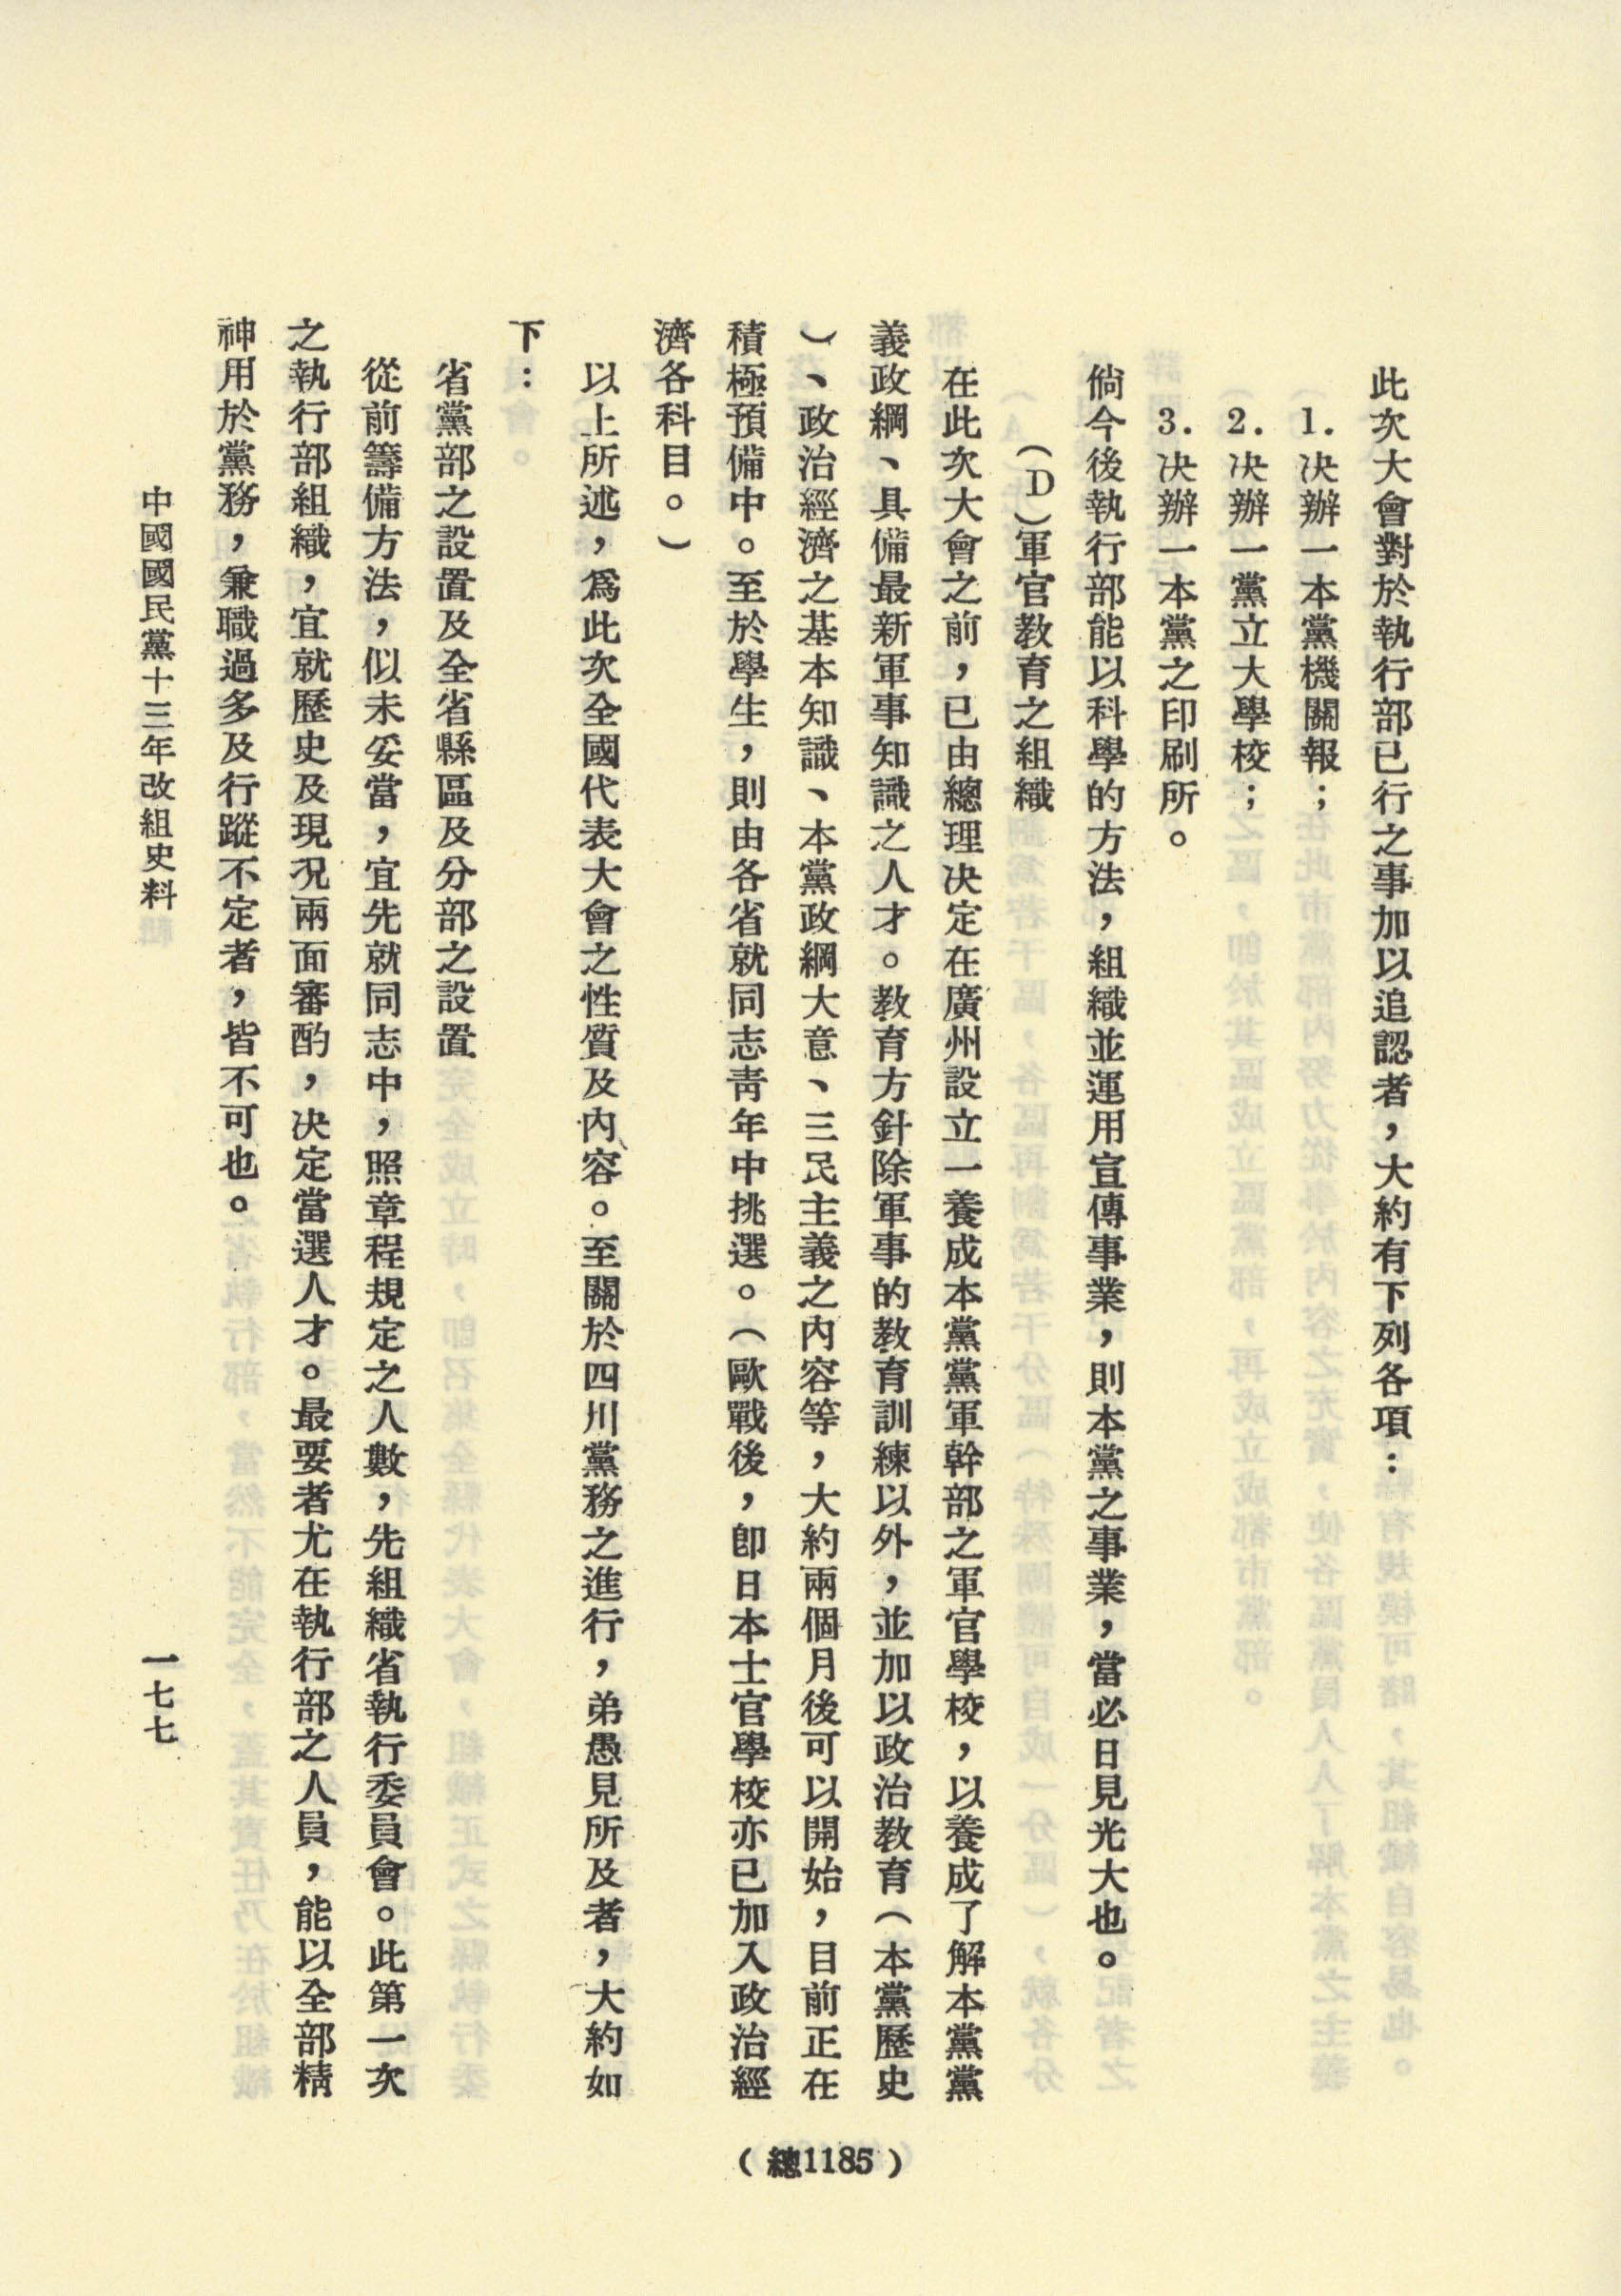 此次大會對於執行部已行之事加以追認者，大約有下列各項：
1.决辦一本黨機關報；
2.决辦一黨立大學校；
3.决辦一本黨之印刷所。
倘今後執行部能以科學的方法，組織並運用宣傳事業，則本黨之事業，當必日見光大也。
（D）軍官教育之組織
在此次大會之前，已由總理決定在廣州設立一養成本黨黨軍幹部之軍官學校，以養成了解本黨黨
義政綱、具備最新軍事知識之人才。教育方針除軍事的教育訓練以外，並加以政治教育（本黨歷史
）、政治經濟之基本知識、本黨政綱大意、三民主義之內容等，大約兩個月後可以開始，目前正在
積極預備中。至於學生，則由各省就同志青年中挑選。（歐戰後，即日本士官學校亦已加入政治經
濟各科目。）
以上所述，爲此次全國代表大會之性質及內容。至關於四川黨務之進行，弟愚見所及者，大約如
下：
省黨部之設置及全省縣區及分部之設置
從前籌備方法，似未妥當，宜先就同志中，照章程規定之人數，先組織省執行委員會。此第一次
之執行部組織，宜就歷史及現況兩面審酌，決定當選人才。最要者尤在執行部之人員，能以全部精
神用於黨務，兼職過多及行蹤不定者，皆不可也。
中國國民黨十三年改組史料
一七七
（總1185）